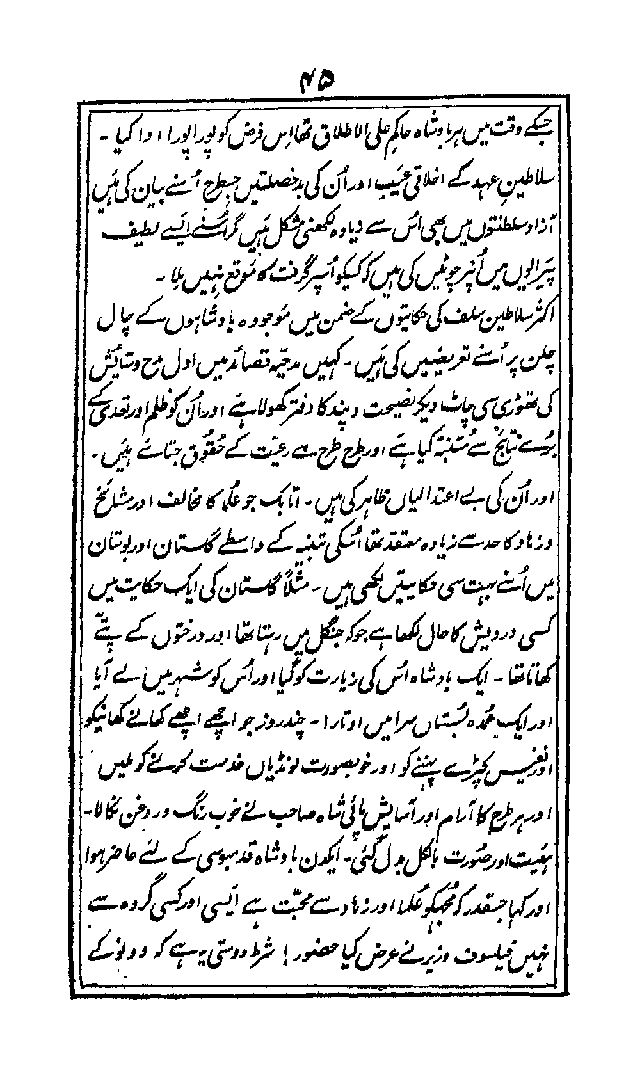 ۴۵
جسکے وقت میں ہر بادشاہ حاکم علی الاطلاق تھا اس فرض کو پورا پورا ادا کیا -
سلاطین عہد کے اخلاقی عیب اور اُن کی بدخصلتیں جسطرح اُسنے بیان کی ہیں
آزاد سلطنتوں میں بھی اُس سے زیادہ لکھنی مشکل ہیں گر اسنے ایسے لطیف
پیرایوں میں اُنپر چوٹیں کی ہیں کہ کسیکو اُسپر گرفت کا موقع نہیں ملا -
اکثر سلاطین سلف کی حکایتوں کے ضمن میں موجودہ بادشاہوں کے چال
چلن پر اُسنے تعریضیں کی ہیں - کہیں مدحیہ قصائد میں اول مدح و ستایش
کی تھوڑی سی چاٹ دیکر نصیحت و پند کا دفتر کھولا ہے اور اُن کو ظلم اور تعدی کے
بُرے نتائج سے متنبہ کیا ہے اور طرح طرح سے رعیت کے حقوق جتائے ہیں -
اور اُن کی بے اعتدالیاں ظاہر کی ہیں - اتابک جو علما کا مخالف اور مشائخ
و زہاد کا حد سے زیادہ معتقد تھا اُسکی تنبیہ کے واسطے گلستان اور بوستان
میں اُسنے بہت سی حکایتیں لکھی ہیں - مثلاً گلستان کی ایک حکایت میں
کسی درویش کا حال لکھا ہے جو کہ جنگل میں رہتا تھا اور درختوں کے پتے
کھاتا تھا - ایک بادشاہ اُس کی زیارت کو گیا اور اُس کو شہر میں لے آیا
اور ایک عمدہ بُستاں سرا میں اوتارا - چند روز جو اچھے اچھے کھانے کھانیکو
اور نفیس کپڑے پہننے کو اور خوبصورت لونڈیاں خدمت کرنے کو ملیں
اور ہر طرح کا آرام اور آسایش پائی شاہ صاحب نے خوب رنگ و روغن نکالا -
ہیئت اور صورت بالکل بدل گئی - ایکدن بادشاہ قدمبوسی کے لئے حاضر ہوا
اور کہا جسقدر کہ مجھکو علما اور زہاد سے محبت ہے ایسی اور کسی گروہ سے
نہیں فیلسوف وزیر نے عرض کیا حضور! شرط دوستی یہ ہے کہ دونوں کے